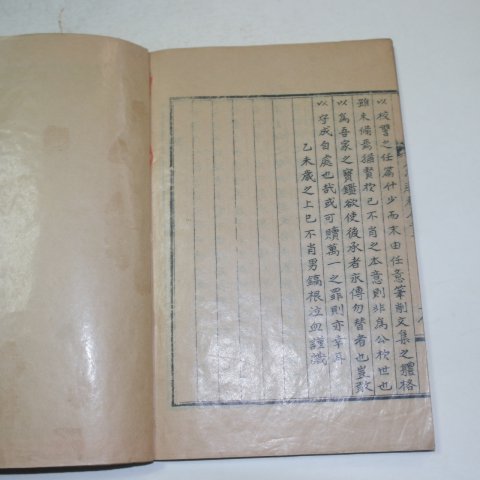 以校讐之任篇什少而末由任意筆削文集之體格
雖未備焉猶賢於已不肖之本意則非爲公於世也
以爲吾家之寶鑑欲使後承者永傳勿替者也豈敢
以子成自處也哉或可贖萬一之罪則亦幸耳
乙未歲之上巳不肖男鎬根泣血謹識